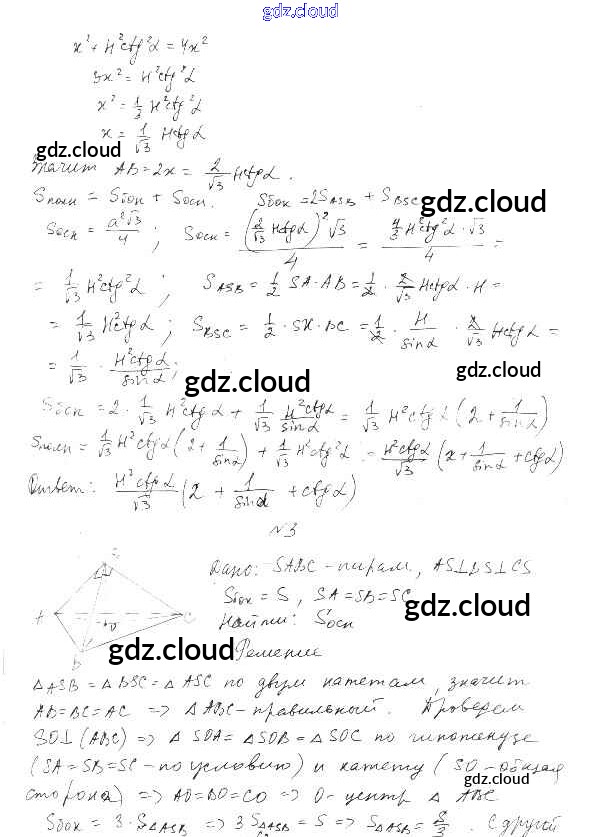 gdz.cloud
x² + H²ctg²α = 4x²
3x² = H²ctg²α
x² = 1/3 H²ctg²α
x = 1/√3 Hctgα
gdz.cloud
Значит AB = 2x = 2/√3 Hctgα.
Sполн = Sбок + Sосн. Sбок = 2SASB + SBSC
gdz.cloud
Sосн = a²√3/4; Sосн = (2/√3 Hctgα)²√3/4 = 4/3 H²ctg²α · √3/4 =
gdz.cloud
= 1/√3 H²ctg²α; SASB = 1/2 SA·AB = 1/2 · 2/√3 Hctgα · H =
= 1/√3 H²ctgα; SBSC = 1/2 · SK · BC = 1/2 · H/sinα · 2/√3 Hctgα =
= 1/√3 · H²ctgα/sinα;
gdz.cloud
gdz.cloud
Sбок = 2 · 1/√3 H²ctgα + 1/√3 H²ctgα/sinα = 1/√3 H²ctgα (2 + 1/sinα)
Sполн = 1/√3 H²ctgα (2 + 1/sinα) + 1/√3 H²ctg²α = H²ctgα/√3 (2 + 1/sinα + ctgα)
Ответ: H²ctgα/√3 (2 + 1/sinα + ctgα)
gdz.cloud
N3
S
Дано: SABC - пирам, AS⊥BS⊥CS
Sбок = S, SA = SB = SC
gdz.cloud
A O C
Найти: Sосн
gdz.cloud
B
Решение
△ASB = △BSC = △ASC по двум катетам, значит
AB = BC = AC => △ABC - правильный. Проведем
gdz.cloud
SO⊥(ABC) => △SOA = △SOB = △SOC по гипотенузе
(SA = SB = SC - по условию) и катету (SO - общая
gdz.cloud
сторона) => AO = BO = CO => O - центр △ABC
gdz.cloud
Sбок = 3 · S△ASB => 3S△ASB = S => S△ASB = S/3. С другой